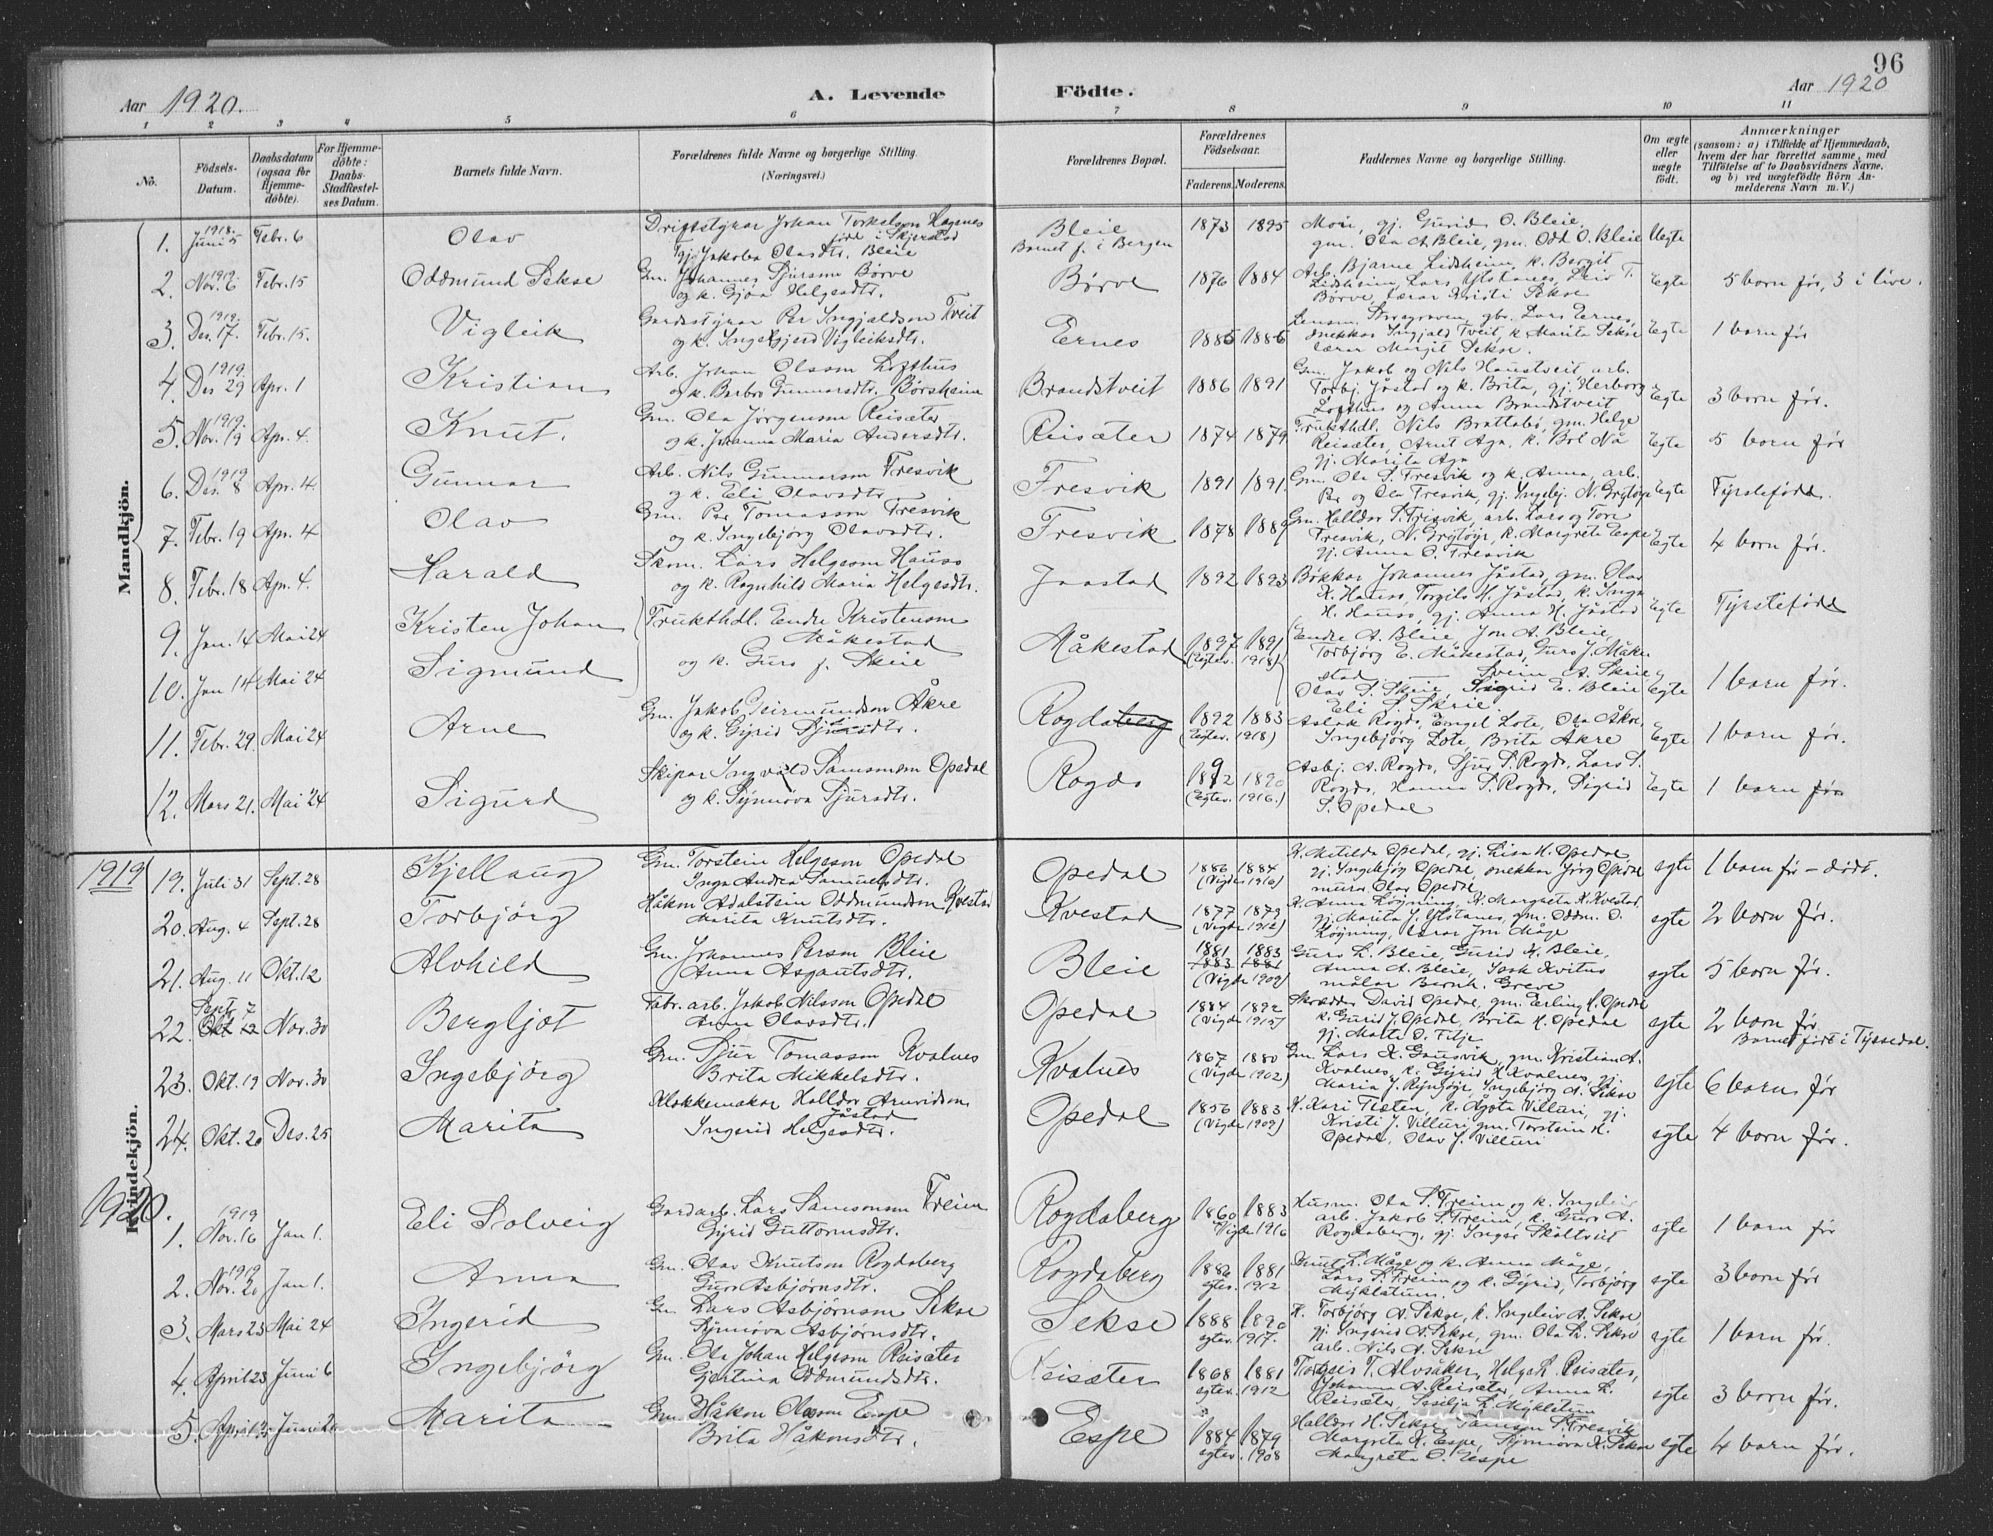 96
Aar 1920.
A. Levende Födte.
Aar 1920
1 2 3 4 5 6 7 8 9 10 11
No.
Födsels-Datum.
Daabsdatum (ogsaa for Hjemme-döbte).
For Hjemme-döbte: Daabs-Stadfæstel-ses Datum.
Barnets fulde Navn.
Forældrenes fulde Navne og borgerlige Stilling. (Næringsvei.)
Forældrenes Bopæl.
Forældrenes Födselsaar.
Faderens. Moderens.
Faddernes Navne og borgerlige Stilling.
Om ægte eller uægte födt.
Anmærkninger
(saasom: a) i Tilfælde af Hjemmedaab, hvem der har forrettet samme, med Tilföielse af to Daabsvidners Navne, og b) ved uægtefödte Börn An-melderens Navn m. V.)
Mandkjön.
1. 1918. Juni 5 Febr. 6 Olav
Driftstyrar Johan Torkelson Hagenes
Tj. Jakoba Olasdtr. Bleie
Bleie
Barnet f. i Bergen
1873 1895
Mori, gj. Gurid O. Bleie,
gm. Ola A Bleie, gm. Odd O. Bleie
Uegte
2. 1919. Nov. 6 Febr. 15 Oddmund Sekse
Gm. Johannes Sjurson Børve
og k. Gjøa Helgesdtr.
Børve 1876 1884
Arb. Bjarne Lidsheim, k. Bergit
Lidsheim, Lars Ystanes, Leiv T.
Børve, lærar Kristi Sekse
Egte
5 born før, 3 i live.
3. 1919. Des. 17. Febr. 15. Vigleik
Gardsstyrar Per Ingjaldson Tveit
og k. Ingebjerd Vigleiksdtr.
Ernes 1885 1886
gbr. Lars Ernes,
snekkar Ingjald Tveit, k. Marita Sekse
lærar Margit Sekse.
Egte
1 barn før
4. 1919. Des 29 Apr. 1 Kristian
Arb. Johan Olsson Lofthus
og k. Berbro Gunnarsdtr. Børsheim
Brandstveit 1886 1891
Gm. Jakob og Nils Haustveit, arb.
Torbj. Jåstad og k. Brita, gj. Herborg
Lofthus og Anna Brandstveit
Egte
3 born før.
5. 1919. Nov. 19 Apr. 4. Knut.
Gm. Ola Jørgenson Reisæter
og k. Johanna Maria Andersdtr.
Reisæter 1874 1879
Frukthdl. Nils Brattabø, gm. Helge
Reisæter, Arnt Aga, k. Brl Nå
gj. Marita Aga
Egte
5 born før
6. 1919 Des. 8 Apr. 4. Gunnar
Arb. Nils Gunnarson Fresvik
og k. Eli Olavsdtr.
Fresvik 1891 1891.
Gm. Ole S. Tresvik og k. Anna, arb.
Per og Ola Tresvik, gj. Ingebj. N. Grytøyr
Egte
Fyrstefødd.
7. Febr. 19 Apr. 4 Olav
Gm. Per Tomasson Fresvik
og k. Ingebjørg Olavsdtr.
Fresvik 1878 1889
Gm. Halldor S. Fresvik, arb. Lars og Tore
Fresvik, N. Grytøyr, k. Margreta Espe
gj. Anna O. Fresvik
Egte
4 born før.
8. Febr. 18 Apr. 4. Harald
Skom. Lars Helgeson Hauso
og k. Ragnhild Maria Helgesdtr.
Jaastad 1892 1893
Bøkkar Johannes Jåstad, gm. Olav
K. Hauso, Torgils H. Jåstad, k. Inga
H. Hauso, gj. Anna H. Jåstad
Egte
Fyrstefødd
9. Jan. 14 Mai 24 Kristen Johan
Frukthdl. Endre Kristenson
Måkestad
og k. Guro f. Skeie
Måkestad 1897 1891
(Egtev. 1918)
Endre A. Bleie, Jon A. Bleie,
Torbjørg E. Måkestad, Guro J. Måke-
stad
10. Jan 14 Mai 24 Sigmund
Svein A. Skeie
Olav S. Skeie, Sigrid E. Bleie
Eli S. Skeie.
Egte
1 barn før.
11. Febr. 29. Mai 24 Arne
Gm. Jakob Geirmundson Åkre
og k. Gyrid Sjursdtr.
Rogdaberg 1892 1883
(Egtev. 1918)
Aslak Rogdo, Engel Lote, Ola Åkre,
Ingebjørg Lote, Brita Åkre
Egte
1 barn før.
12. Mars 21. Mai 24 Sigurd
Skipar Ingvald Samsonson Opedal
og k. Synnøva Sjursdtr.
Rogdo 1892 1890
(Egtev. 1916.)
Asbj. A. Rogdo, Sjur S. Rogdo, Lars S.
Rogdo, Hanna S. Rogdo, Sigrid
S. Opedal
Egte
1 barn før
Kvindekjön.
1919
19. Juli 31 Sept. 28 Kjellaug
Gm. Torstein Helgeson Opedal
Inga Andrea Samuelsdtr.
Opedal 1886 1884
(Vigde 1916)
K. Matilda Opedal, gj. Lisa H. Opedal
gj. Ingebjørg Opedal, snekkar Jørg Opedal
murar Olav Opedal
egte
1 barn før – dødt.
20. Aug. 4 Sept. 28 Torbjørg
Håkon Adalstein Oddmundson Kvestad
Marita Knutsdtr.
Kvestad 1877 1879
(Vigde 1912)
K. Anna Løyning, K. Margreta K. Kvestad
gj. Marita J. Ystanes, gm. Oddm. O.
Løyning, lærar Jon Måge
egte
2 born før.
21. Aug. 11 Okt. 12 Alvhild
Gm. Johannes Person Bleie
Anna Asgautsdtr.
Bleie 1881 1883
1883 1881
(Vigde 1909)
Guro L. Bleie, Gurid H. Bleie,
Anna A. Bleie, Isak Kvitus
målar Bernh. Greve
egte
5 born før.
22. Sept. 7 Okt 12 Nov. 30 Bergljot
Fabr. arb. Jakob Nilsson Opedal
Anna Olavsdtr.
Opedal 1884 1892
(Vigde 1915)
Skrædder David Opedal, gm. Erling H. Opedal
k. Gurid J. Opedal, Brita H. Opedal
gj. Marta O. Filje
egte
2 born før
Barnet født i Tyssedal.
23. Okt. 19 Nov. 30 Ingebjørg
Gm. Sjur Tomasson Kvalnes
Brita Mikkelsdtr.
Kvalnes 1867 1880
(Vigde 1902)
Gm. Lars K. Gausvik, gm. Kristian A.
Kvalnes, k. Gyrid H Kvalnes, gj.
Maria J. Rynsøyr, Ingebjørg A. Sekse
egte
6 barn før
24. Okt. 20 Des. 25 Marita
Klokkemakar Halldor Arnvidson
Jåstad
Ingerid Helgesdtr.
Opedal 1856 1883
(Vigde 1909)
K. Kari Tveten, k. Ågota Villuri, gj.
Kristi J. Villuri, gm. Torstein H.
Opedal, Olav J. Villuri
egte
4 born før.
1920.
1. 1919 Nov. 16 Jan 1. Eli Solveig
Gardarb. Lars Samsonson Freim
Gyrid Guttormsdtr.
Rogdaberg 1860 1883
Vigde 1916
Husm. Ola S. Freim og k. Ingeleiv
arb. Jakob S. Freim, k. Guro A.
Rogdaberg, gj. Inger Skåltveit
egte
1 barn før
2. 1919 Nov. 20 Jan 1. Anna
Gm. Olav Knutson Rogdaberg
Guro Asbjørnsdtr.
Rogdaberg 1882 1881
egtev. 1912
Knut L. Måge og k. Anna Måge,
Lars S. Freim og k. Gyrid, Torbjørg
Mykletun.
egte
3 born før
3. Mars 23 Mai 24 Ingerid
Gm Lars Asbjørnson Sekse
Synnøva Asbjørnsdtr.
Sekse 1888 1890
egtev. 1917.
K. Torbjørg A. Sekse, k. Ingeleiv A. Sekse
gj. Ingerid A. Sekse, gm. Ola L. Sekse
arb. Nils A. Sekse
egte
1 barn før.
4. April 23 Juni 6 Ingebjørg
Gm. Ola Johan Helgeson Reisæter
Gjertina Oddmundsdtr.
Reisæter 1868 1881
egtev. 1912
Torgeis T. Alvsåker, Helga L. Reisæter,
Johanna A. Reisæter, Anna L.
Reisæter, Sesilja L. Mykletun
egte
3 born før.
5. April Juni Marita
Gm. Håkon Olason Espe
Brita Håkonsdtr.
Espe 1884 1879
egtev. 1908
Halldor H. Sekse, Samson S. Fresvik
Margreta K. Espe, Synnøva K. Sekse
Margreta O. Espe
egte
4 born før.